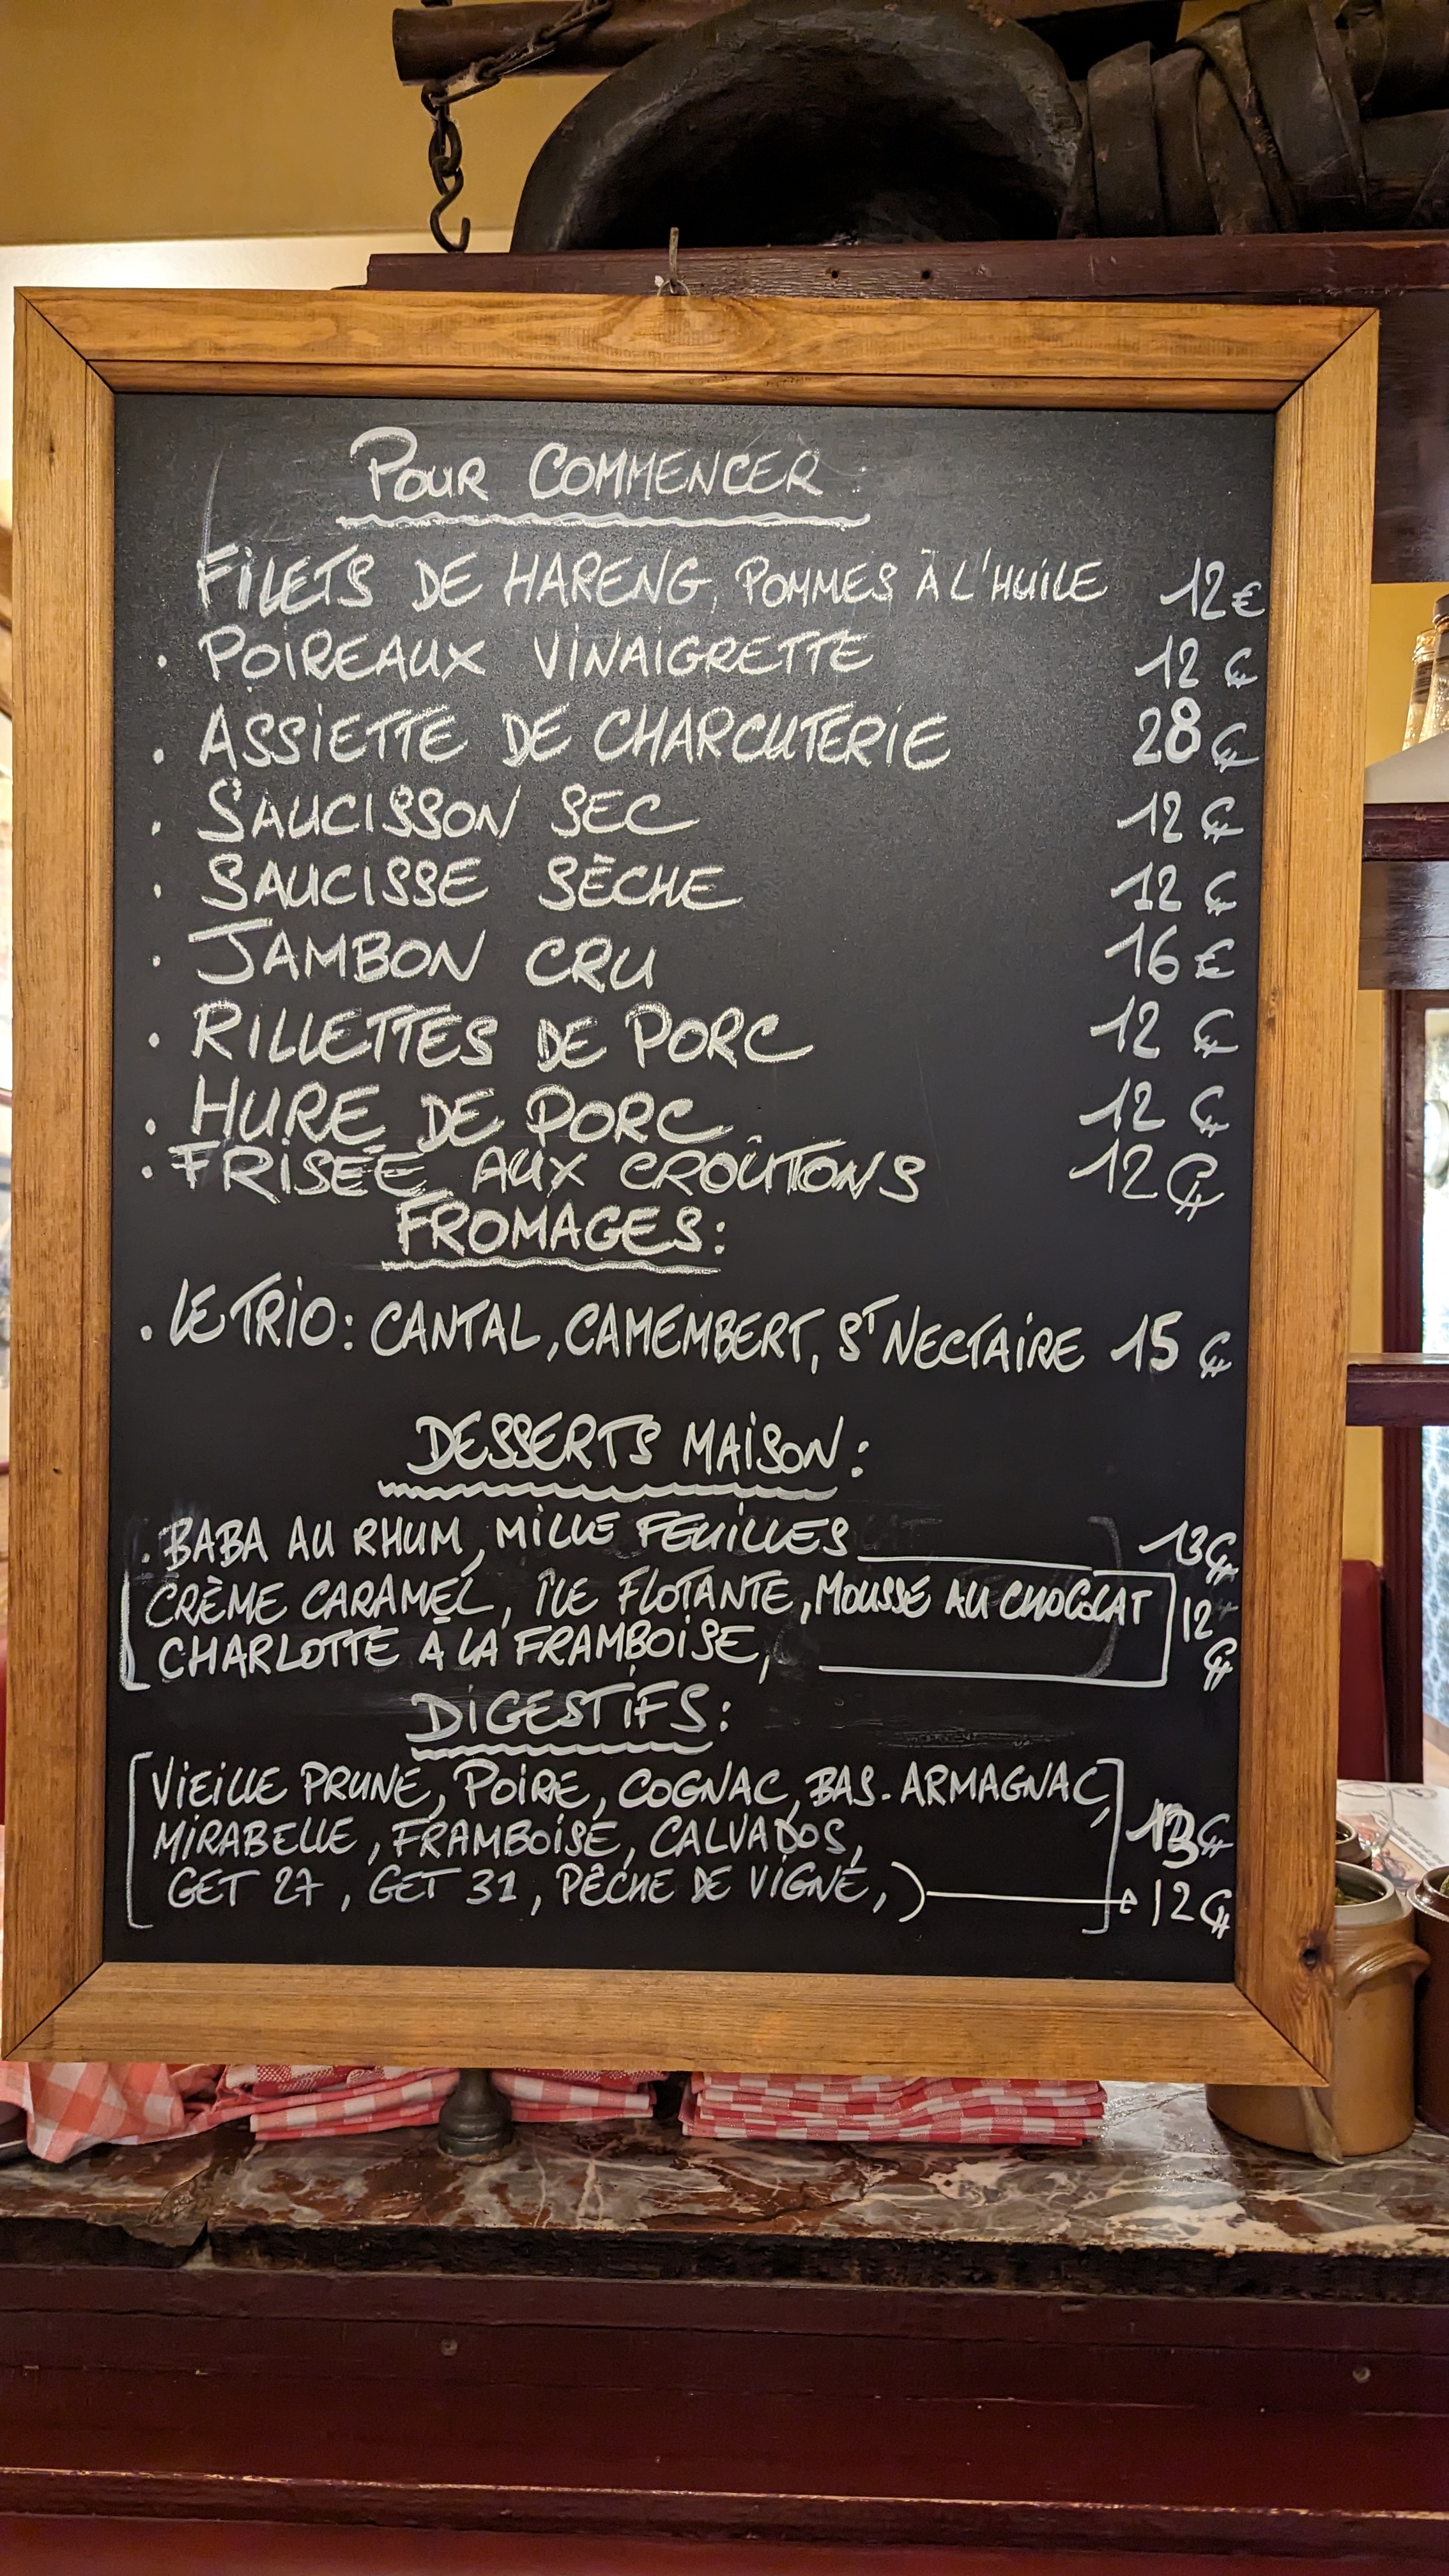 POUR COMMENCER
FILETS DE HARENG, POMMES À L'HUILE 12€
. POIREAUX VINAIGRETTE 12 €
. ASSIETTE DE CHARCUTERIE 28 €
. SAUCISSON SEC 12 €
. SAUCISSE SÈCHE 12 €
. JAMBON CRU 16 €
. RILLETTES DE PORC 12 €
. HURE DE PORC 12 €
. FRISÉE AUX CROÛTONS 12 €
FROMAGES:
. LE TRIO: CANTAL, CAMEMBERT, ST NECTAIRE 15 €
DESSERTS MAISON:
. BABA AU RHUM, MILLE FEUILLES 13€
CRÈME CARAMEL, ÎLE FLOTANTE, MOUSSE AU CHOCOLAT 12 €
CHARLOTTE À LA FRAMBOISE,
DIGESTIFS:
VIEILLE PRUNE, POIRE, COGNAC, BAS-ARMAGNAC,
MIRABELLE, FRAMBOISE, CALVADOS, 13€
GET 27, GET 31, PÊCHE DE VIGNE,) 12€